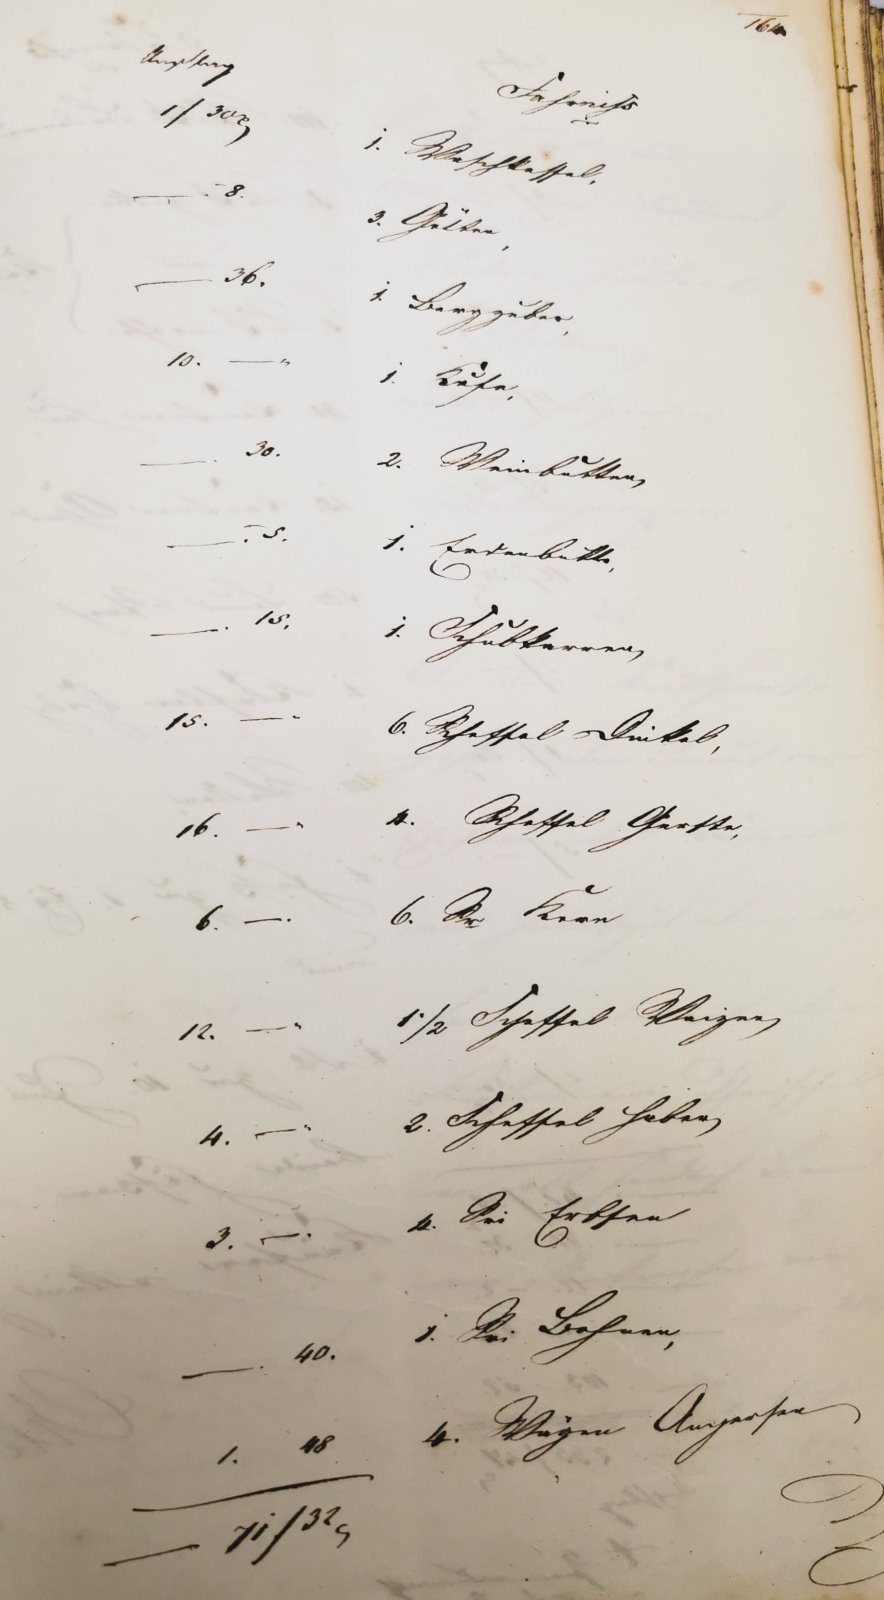 164.
Anschlag Fahrniß
1 f 30 x 1. Waschkessel,
— . 8. 3. Gölten,
— 36. 1. Bergzuber,
10. — " 1. Kufe,
— . 30. 2. Weinbutten,
— . 5. 1. Erdenbutte,
— . 15. 1. Schubkarren,
15. — " 6. Scheffel Dinkel,
16. — " 4. Scheffel Gerste,
6. — . 6. Sri Kern
12. — " 1 1/2 Scheffel Weizen,
4. — " 2. Scheffel Haber,
3. — . 4. Sri Erbsen
— . 40. 1. Sri Bohnen,
1. 48 4. Wägen Angersen
— 71 f 32